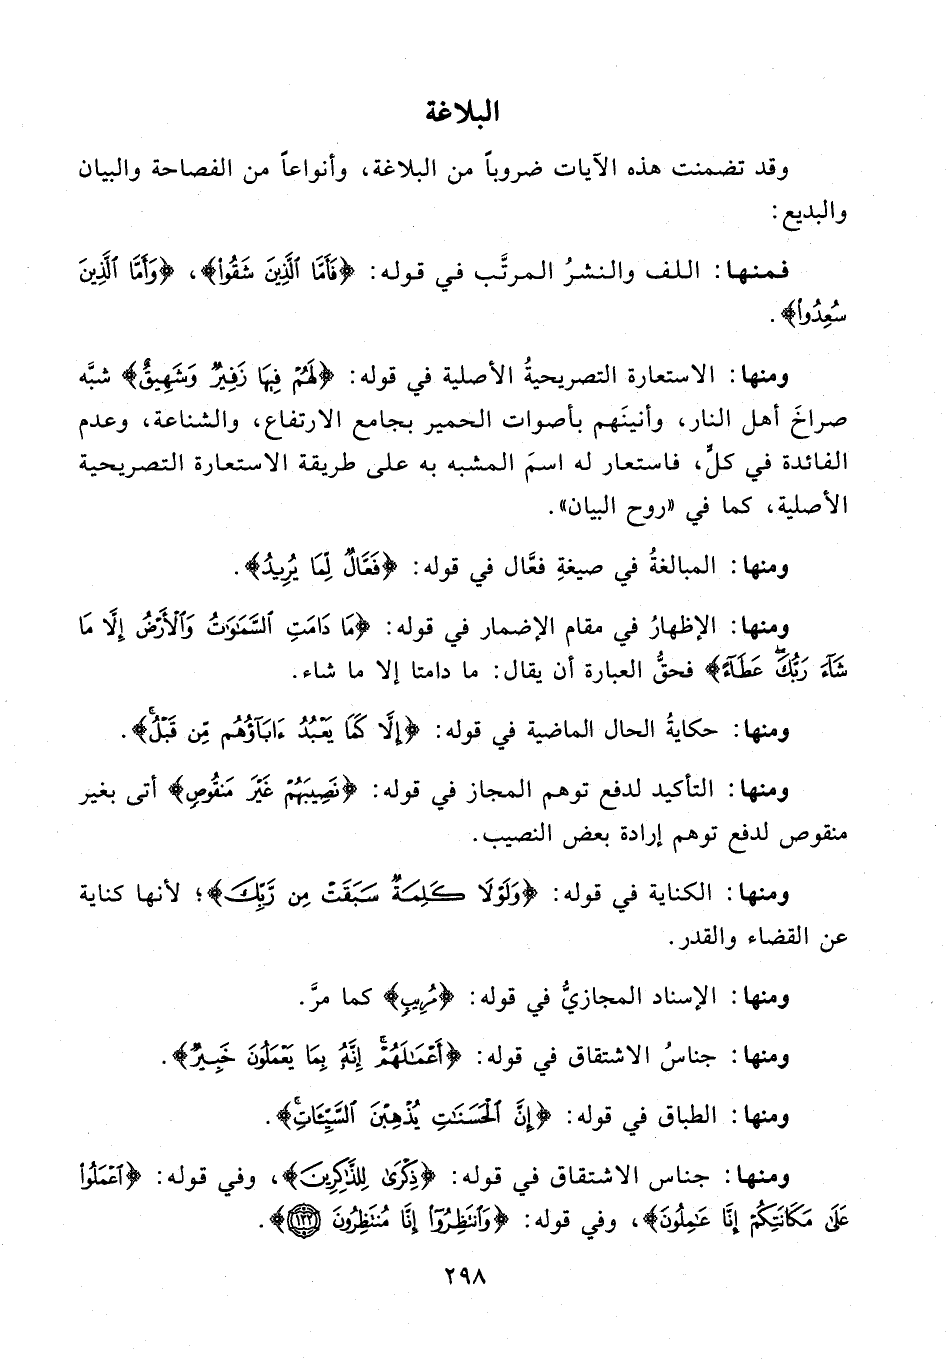 البلاغة
وقد تضمنت هذه الآيات ضروباً من البلاغة، وأنواعاً من الفصاحة والبيان
والبديع:
فمنها: اللف والنشرُ المرتَّب في قوله: ﴿فَأَمَّا ٱلَّذِينَ شَقُوا۟﴾، ﴿وَأَمَّا ٱلَّذِينَ
سُعِدُوا۟﴾.
ومنها: الاستعارة التصريحيةُ الأصلية في قوله: ﴿لَهُمْ فِيهَا زَفِيرٌ وَشَهِيقٌ﴾ شبَّه
صراخَ أهل النار، وأنينَهم بأصوات الحمير بجامع الارتفاع، والشناعة، وعدم
الفائدة في كلٍّ، فاستعار له اسمَ المشبه به على طريقة الاستعارة التصريحية
الأصلية، كما في «روح البيان».
ومنها: المبالغةُ في صيغةِ فعَّال في قوله: ﴿فَعَّالٌ لِّمَا يُرِيدُ﴾.
ومنها: الإظهارُ في مقام الإضمار في قوله: ﴿مَا دَامَتِ ٱلسَّمَـٰوَٰتُ وَٱلْأَرْضُ إِلَّا مَا
شَآءَ رَبُّكَۖ عَطَآءً﴾ فحقُّ العبارة أن يقال: ما دامتا إلا ما شاء.
ومنها: حكايةُ الحال الماضية في قوله: ﴿إِلَّا كَمَا يَعْبُدُ ءَابَآؤُهُم مِّن قَبْلُۚ﴾.
ومنها: التأكيد لدفع توهم المجاز في قوله: ﴿نَصِيبَهُمْ غَيْرَ مَنقُوصٍ﴾ أتى بغير
منقوص لدفع توهم إرادة بعض النصيب.
ومنها: الكناية في قوله: ﴿وَلَوْلَا كَلِمَةٌ سَبَقَتْ مِن رَّبِّكَ﴾؛ لأنها كناية
عن القضاء والقدر.
ومنها: الإسناد المجازيُّ في قوله: ﴿مُرِيبٍ﴾ كما مرَّ.
ومنها: جناسُ الاشتقاق في قوله: ﴿أَعْمَـٰلَهُمْۚ إِنَّهُۥ بِمَا يَعْمَلُونَ خَبِيرٌ﴾.
ومنها: الطباق في قوله: ﴿إِنَّ ٱلْحَسَنَـٰتِ يُذْهِبْنَ ٱلسَّيِّـَٔاتِۚ﴾.
ومنها: جناس الاشتقاق في قوله: ﴿ذِكْرَىٰ لِلذَّٰكِرِينَ﴾، وفي قوله: ﴿ٱعْمَلُوا۟
عَلَىٰ مَكَانَتِكُمْ إِنَّا عَـٰمِلُونَ﴾، وفي قوله: ﴿وَٱنتَظِرُوٓا۟ إِنَّا مُنتَظِرُونَ ١٢٢﴾.
٢٩٨